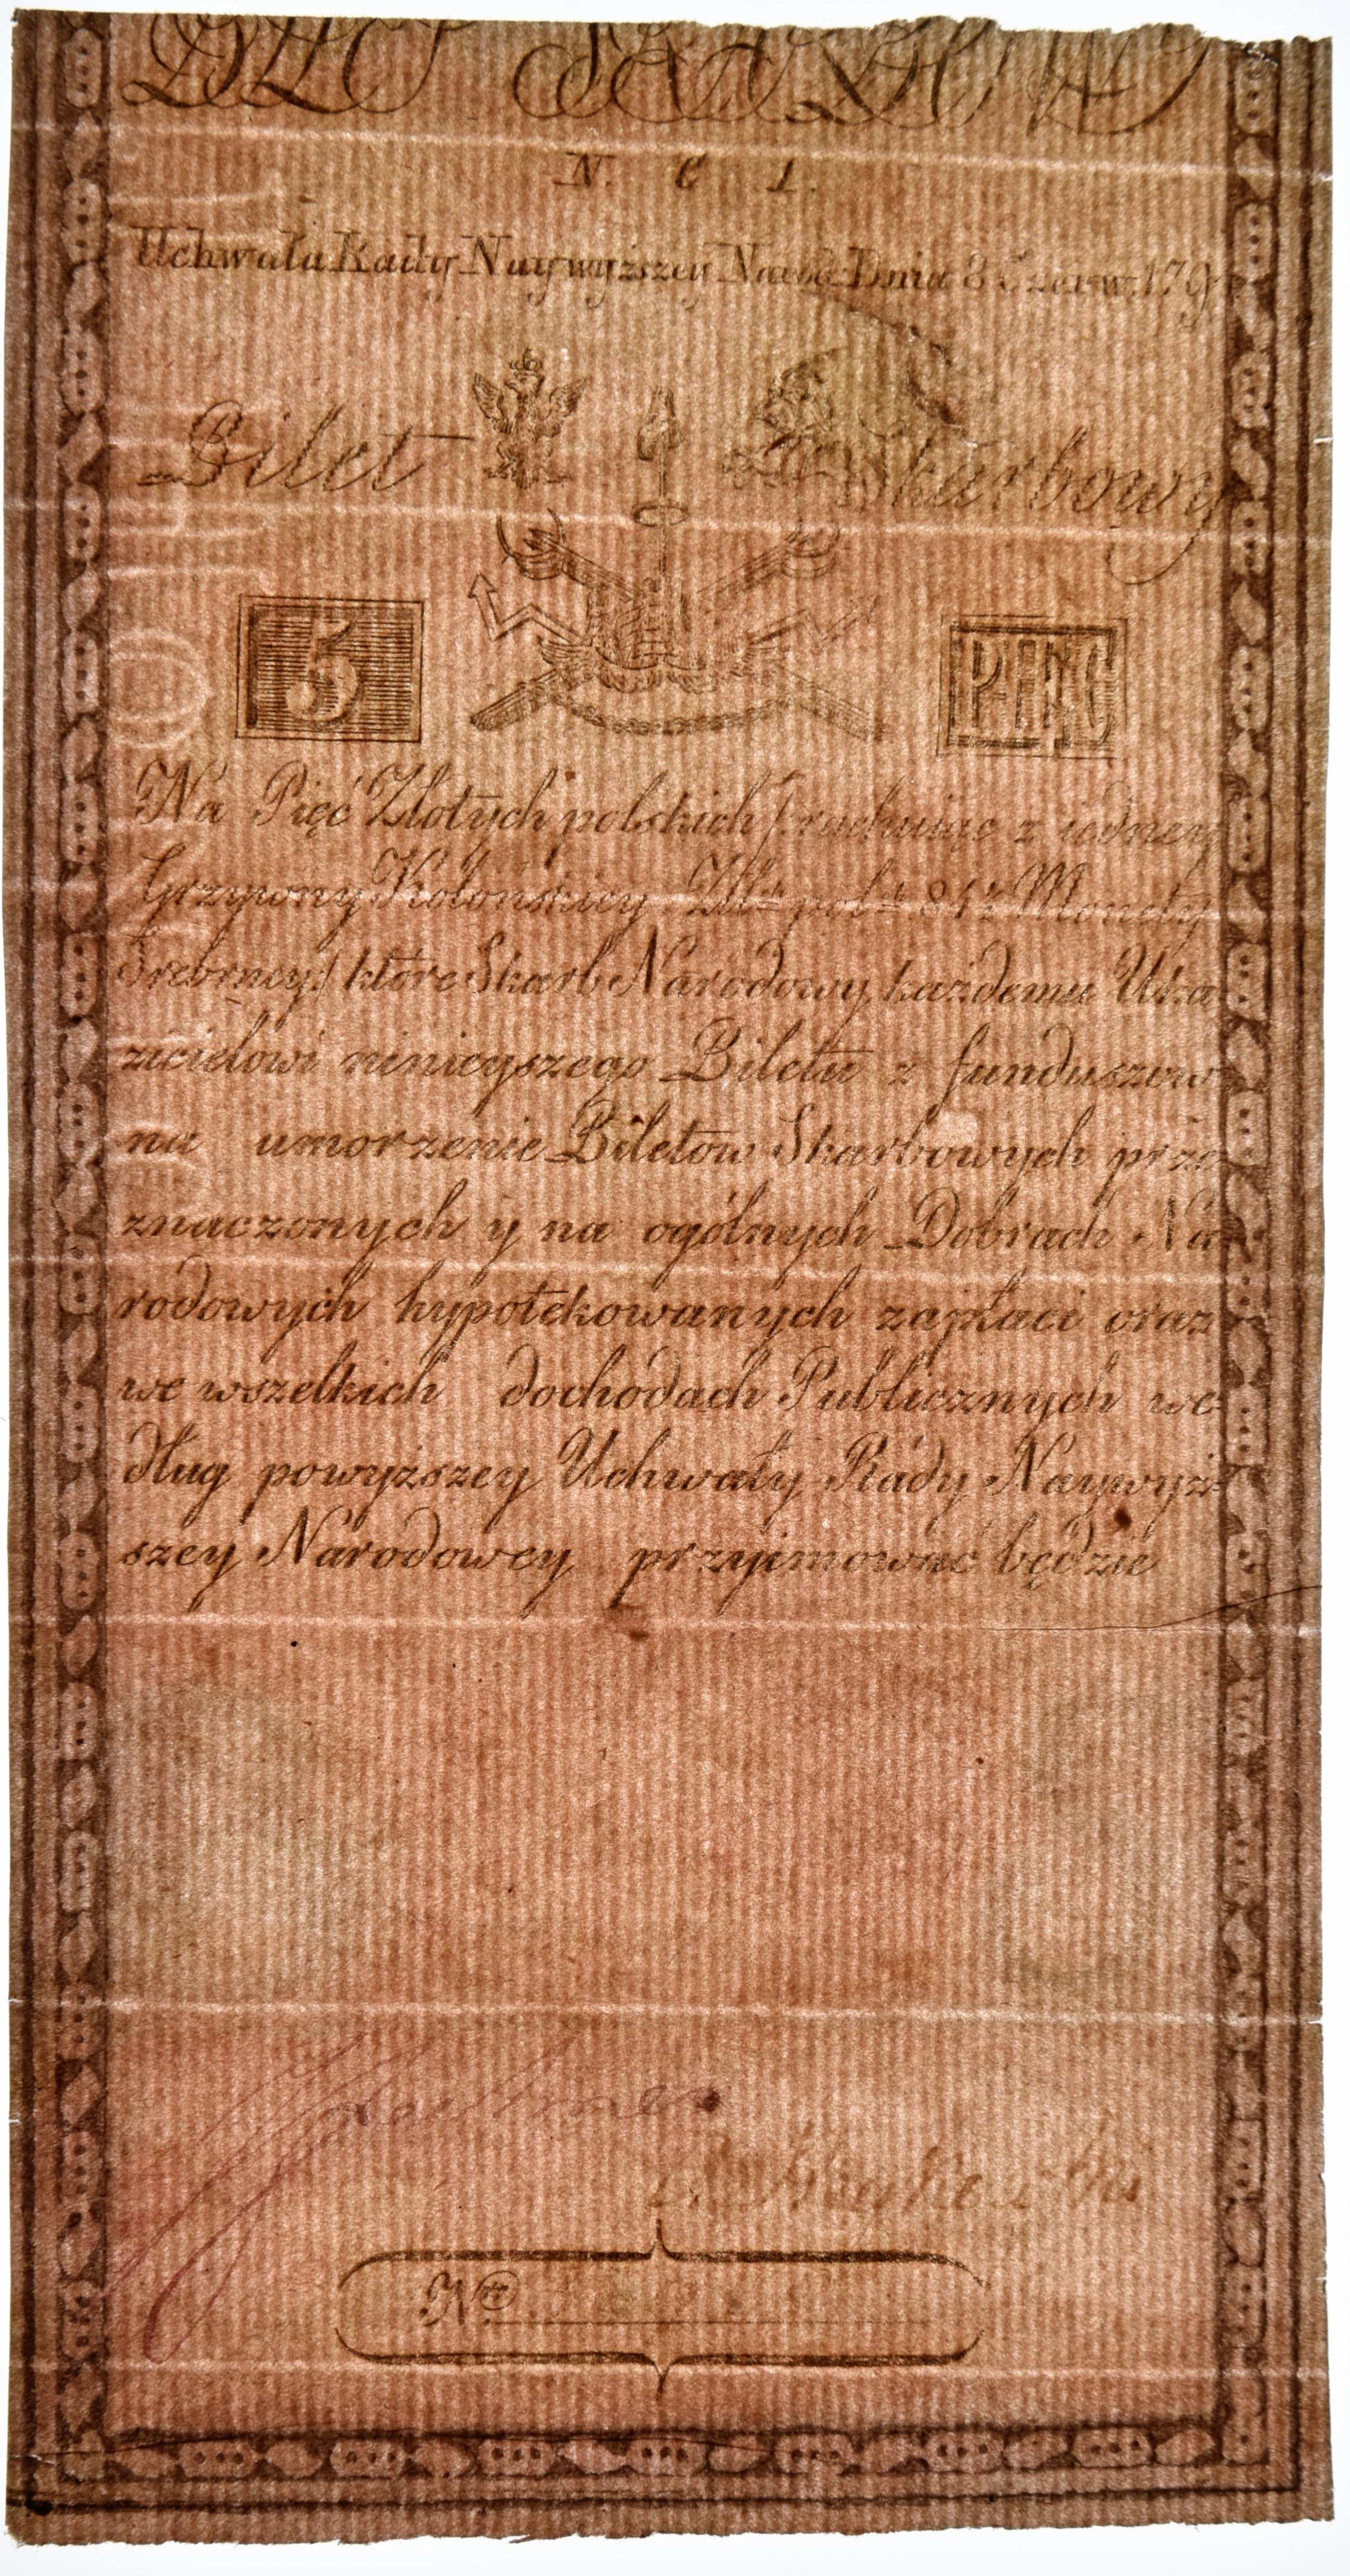 N. C 1.
Uchwała Rady Naywyższey Narod: Dnia 8 Czerw: 179
Bilet Skarbowy
5 PIĘC
Na Pięć Złotych polskich (rachuiąc z iedney
Grzywny Kolońskiey Zł: pol: 84½ Monety
Srebrney) które Skarb Narodowy każdemu Uka
zicielowi ninieyszego Biletu z funduszow
na umorzenie Biletow Skarbowych prze
znaczonych y na ogólnych Dobrach Na
rodowych hypotekowanych zapłaci oraz
we wszelkich dochodach Publicznych we-
dług powyższey Uchwały Rady Naywyż-
szey Narodowey przyimować będzie
Nro